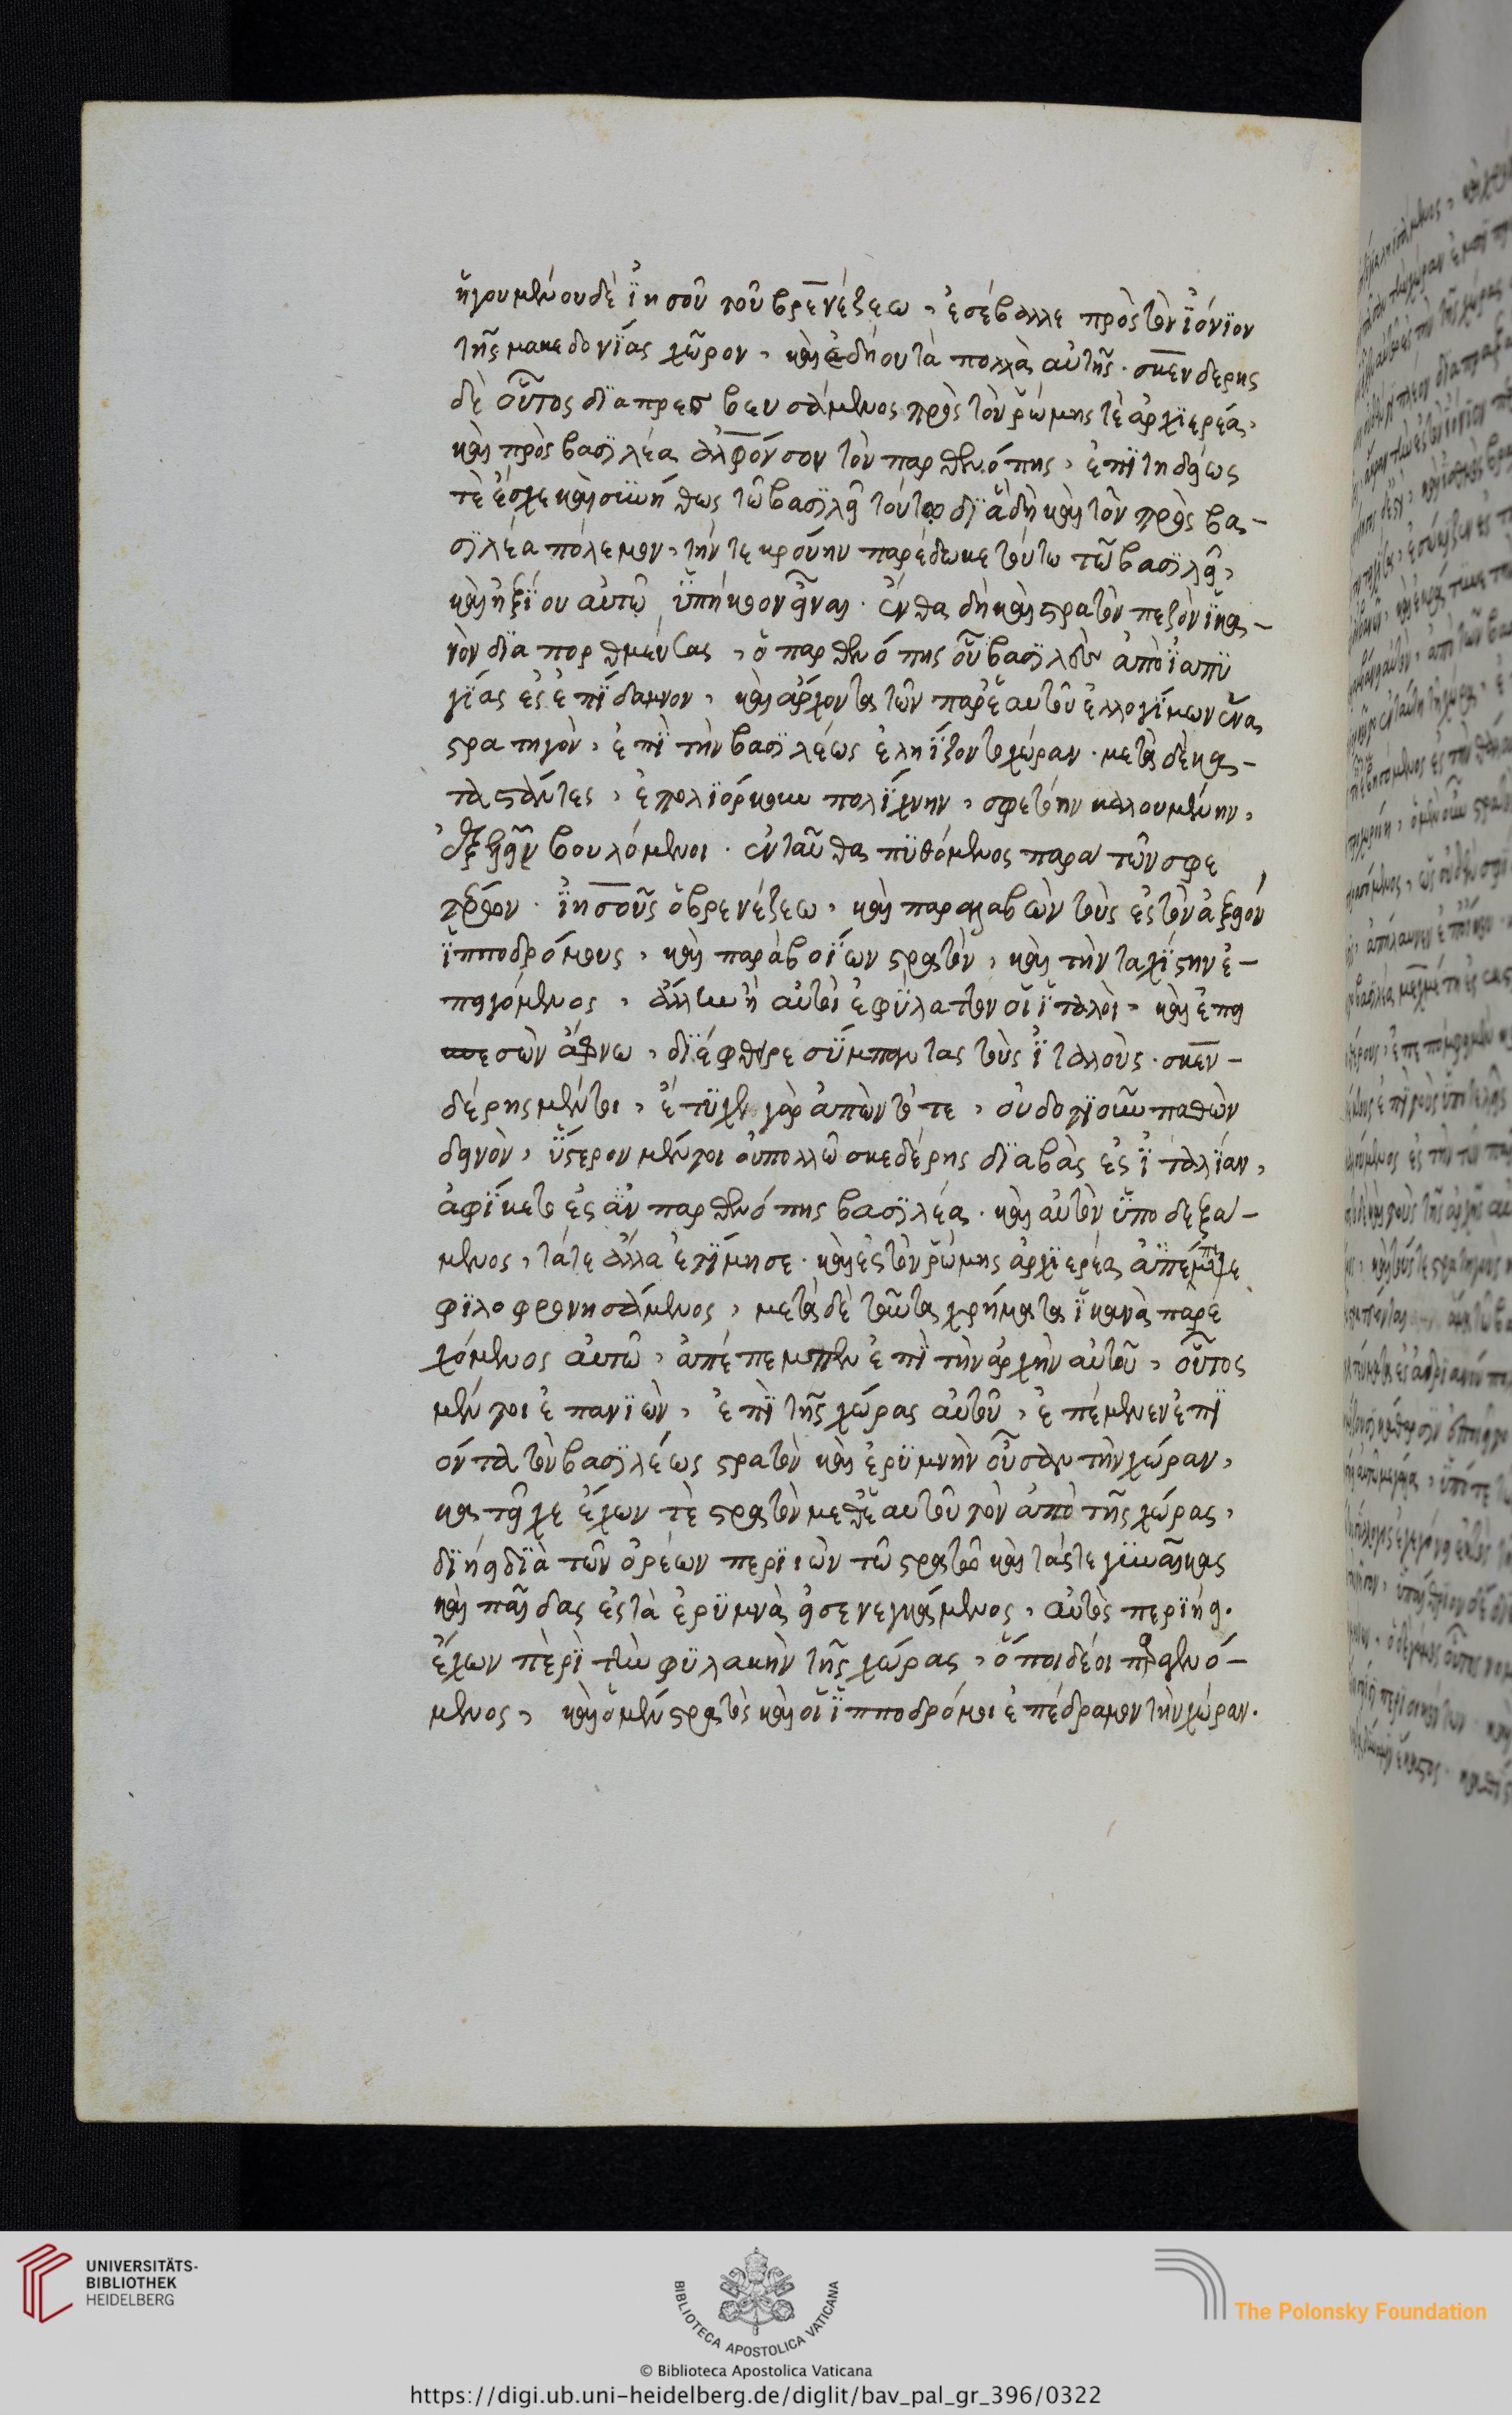 ἡγουμένου δὲ ἰησοῦ τοῦ βρενέζεω, ἐσέβαλλε πρὸς τὸν ἰόνιον
τῆς μακεδονίας χῶρον, καὶ ἐδῄου τὰ πολλὰ αὐτῆς. σκενδερης
δὲ οὗτος διαπρεσβευσάμενος πρὸς τὸν ῥώμης τὲ ἀρχιερέα,
καὶ πρὸς βασιλέα ἀλφόνσον τὸν παρθενόπης, ἐπιτηδείως
τὲ ἔσχε καὶ συνήθως τῶ βασιλεῖ τούτω διὰ δὴ καὶ τὸν πρὸς βα-
σιλέα πόλεμον, τήν τε κρούην παρέδωκε τούτω τῶ βασιλεῖ,
καὶ ἠξίου αὐτῶ ὑπήκοον εἶναι. ἔνθα δὴ καὶ στρατὸν πεζὸν ἱκα-
νὸν διαπορθμεύσας, ὁ παρθενόπης οὖ βασιλεὺς ἀπὸ ἰαπυ
γίας ἐς ἐπίδαμνον, καὶ ἄρχοντα τῶν παρ' ἑαυτοῦ ἐλλογίμων ἕνα
στρατηγὸν, ἐπὶ τὴν βασιλέως ἐληΐζοντο χώραν. μετὰ δὲ κα-
ταστάντες, ἐπολιόρκουν πολίχνην, σφετίην καλουμένην,
ἐξελεῖν βουλόμενοι. ἐνταῦθα πυθόμενος παρα τῶν σφε
τέρων. ἰησοῦς ὁ βρενέζεω, καὶ παραλαβὼν τοὺς ἐς τὸν ἀξιὸν
ἱπποδρόμους, καὶ παράβοίων στρατὸν, καὶ τὴν ταχίστην ἐ-
παγόμενος, ἄλλων ἢ αὐτοὶ ἐφύλαττον οἱ ἰταλοὶ, καὶ ἐπει
σπεσὼν ἄφνω, διέφθειρε σύμπαντας τοὺς ἰταλοὺς. σκεν-
δέρης μέντοι, ἔτυχεν γὰρ ἀπὼν τότε, οὐδοτιοῦν παθὼν
δεινὸν, ὕστερον μέντοι οὐ πολλῶ σκεδέρης διαβὰς ἐς ἰταλίαν,
ἀφίκετο ἐς ἂν παρθενόπης βασιλέα. καὶ αὐτὸν ὑποδεξά-
μενος, τά τε ἄλλα ἐτίμησε. καὶ ἐς τὸν ῥώμης ἀρχιερέα ἀπέπεμψε
φιλοφρονησάμενος, μετὰ δὲ ταῦτα χρήματα ἱκανὰ παρε
χόμενος αὐτῶ, ἀπέπεμπεν ἐπὶ τὴν ἀρχὴν αὐτοῦ, οὗτος
μέντοι ἐπανιὼν, ἐπὶ τῆς χώρας αὐτοῦ, ἐπέμενεν ἐπι
όντα τὸν βασιλέως στρατὸν καὶ ἐρυμνὴν οὖσαν τὴν χώραν,
κατεῖχε ἔχων τὲ στρατὸν μεθ' ἑαυτοῦ τὸν ἀπὸ τῆς χώρας,
διῄει διὰ τῶν ὀρέων περιιὼν τῶ στρατῶ καὶ τάς τε γυναῖκας
καὶ παῖδας ἐς τὰ ἐρυμνὰ εἰσενεγκάμενος, αὐτὸς περιῄει.
ἔχων περὶ τὴν φυλακὴν τῆς χώρας, ὅποι δέοι παραγενό-
μενος, καὶ ὁ μὲν στρατὸς καὶ οἱ ἱπποδρόμοι ἐπέδραμον τὴν χώραν.
UNIVERSITÄTS-
BIBLIOTHEK
HEIDELBERG
BIBLIOTECA APOSTOLICA VATICANA
The Polonsky Foundation
© Biblioteca Apostolica Vaticana
https://digi.ub.uni-heidelberg.de/diglit/bav_pal_gr_396/0322